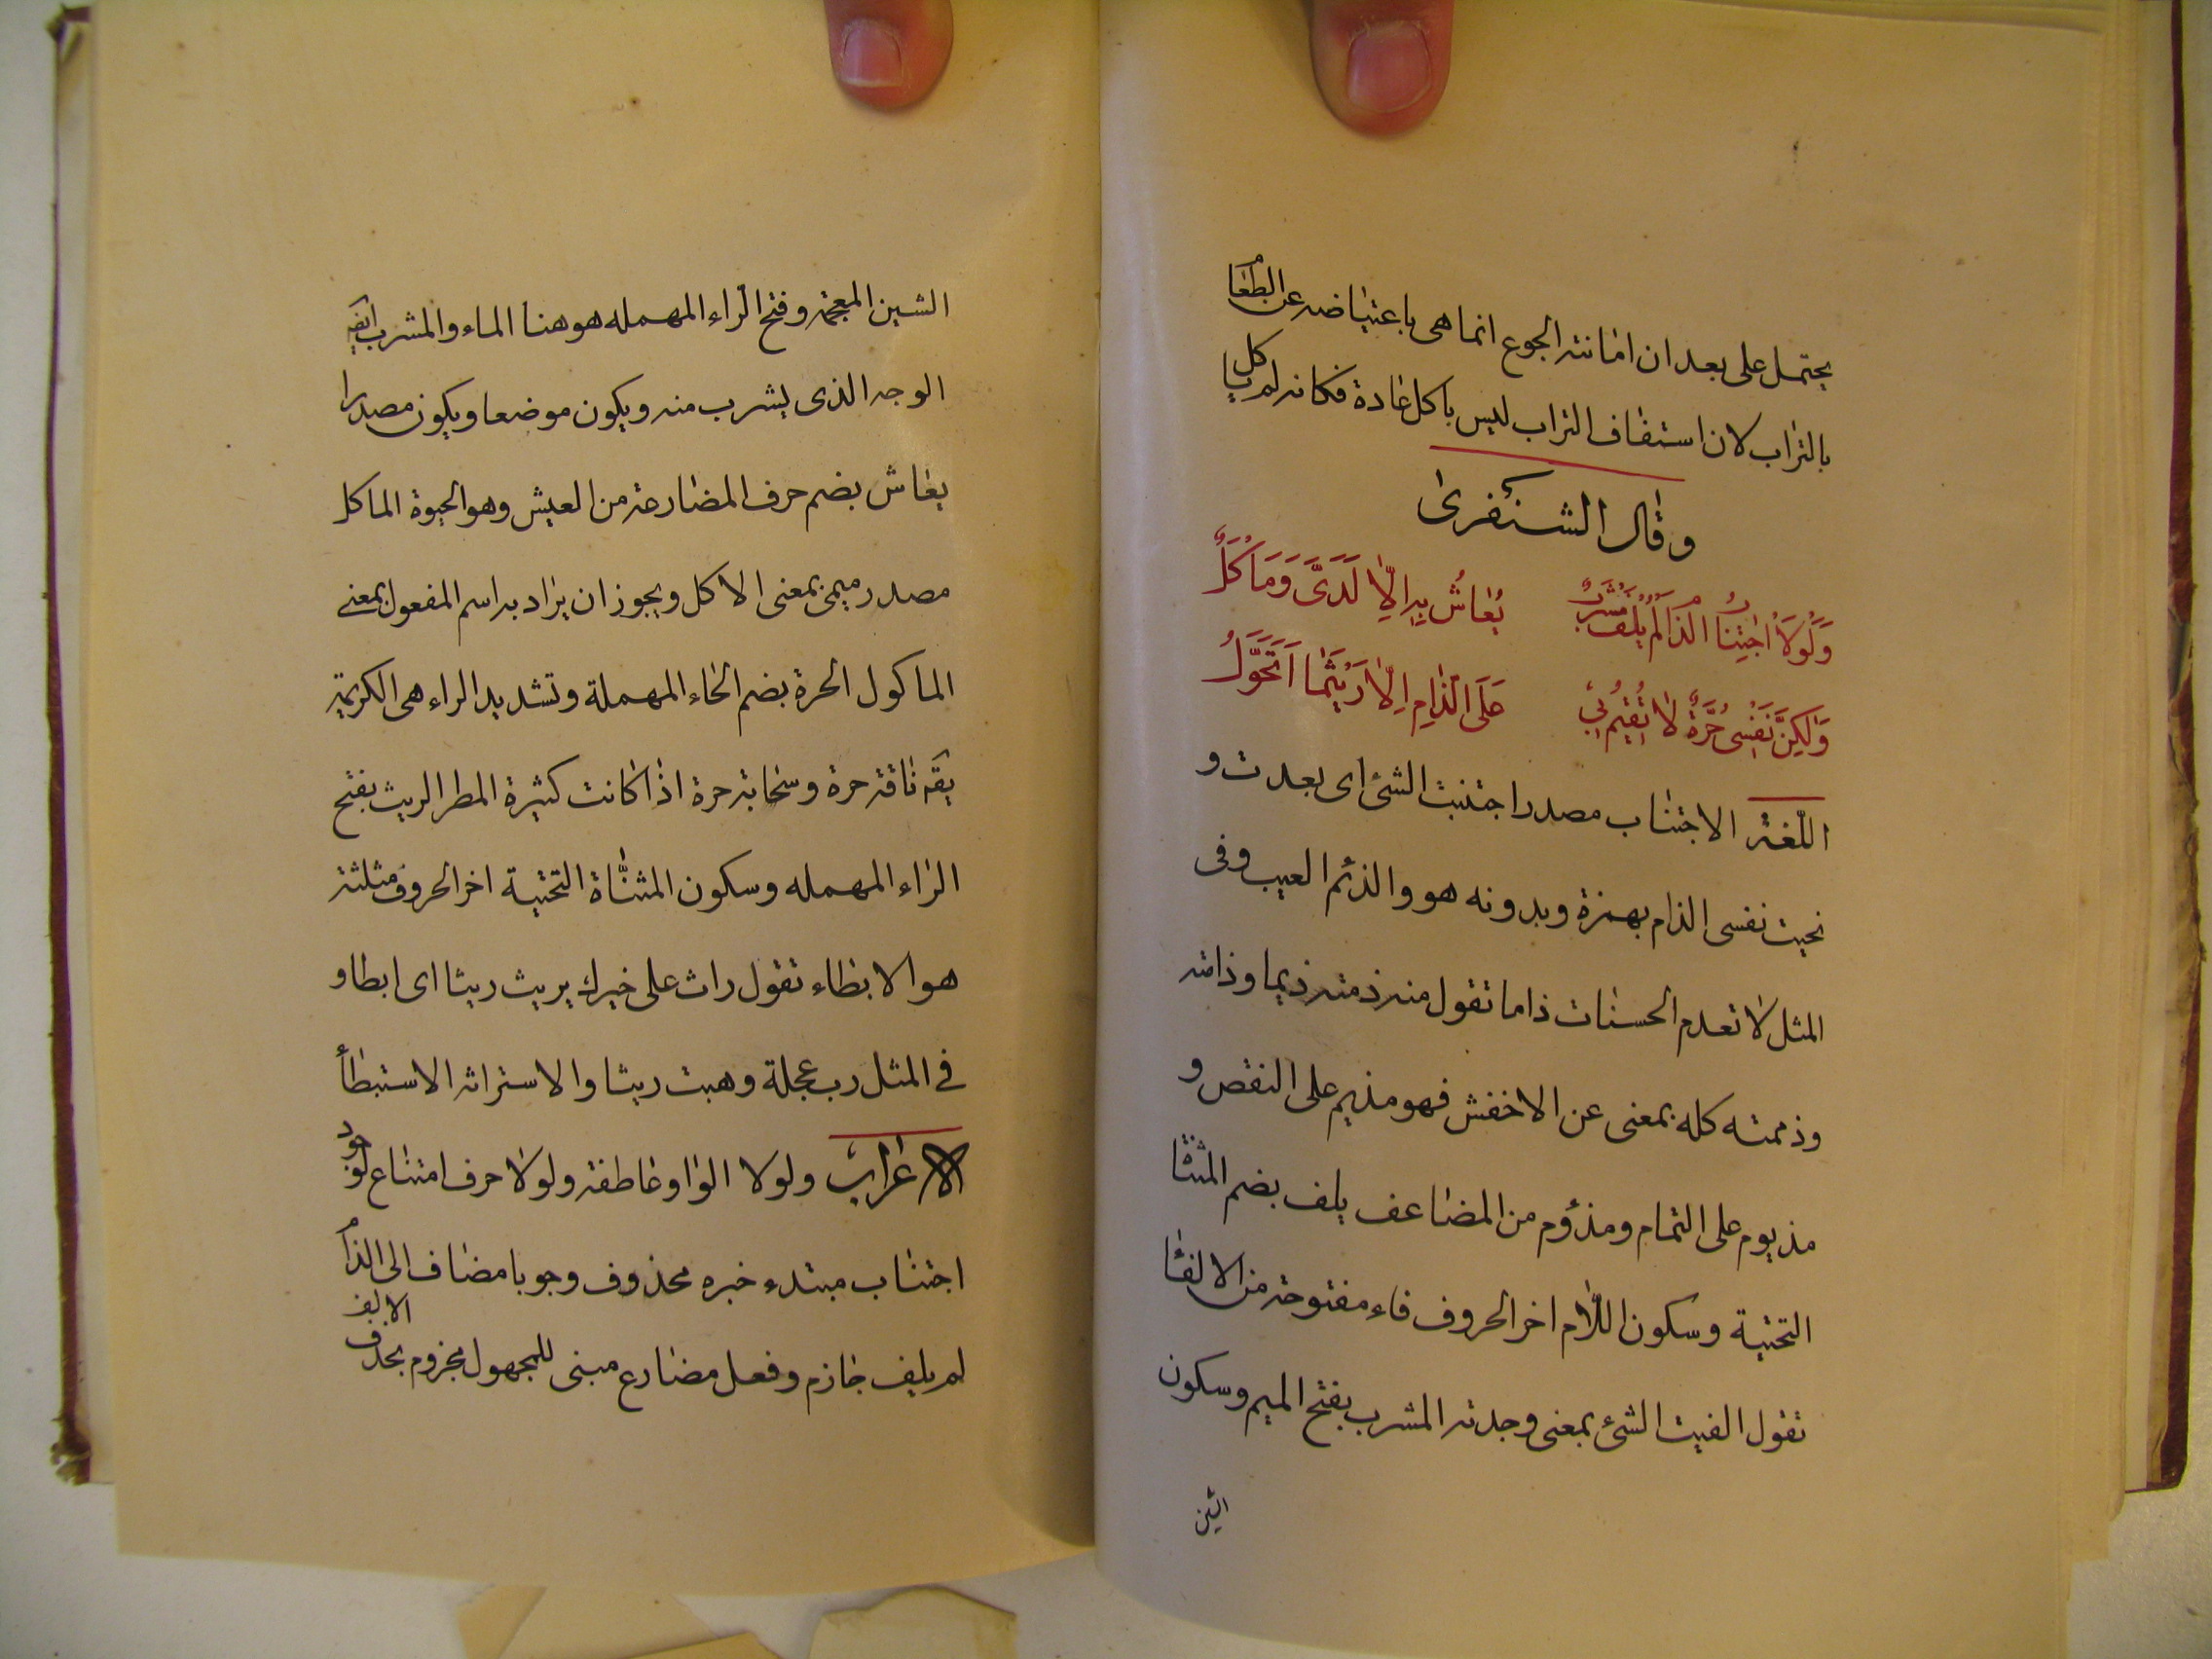 يحتمل على بعد ان اماتته الجوع انما هى باعتياضه عن الطعام
بالتراب لان استفاف التراب ليس باكل عادة فكانه لم ياكل
وقال الشنفرى
وَلَولَا اجْتِنَابُ الذَامِ لَمْ يُلْفَ مَشْرَبٌ يُعَاشُ بِهِ اِلَّا لَدَىَّ وَمَاكَلٌ
وَلٰكِنَّ نَفْسِى حُرَّةٌ لَا تُقِيْمُ بِى عَلَى الذَامِ اِلَّا رَيْثَمَا اَتَحَوَّلُ
اللّغة الاجتناب مصدر اجتنبت الشئ اى بعدت و
نحيت نفسى الذام بهمزة وبدونه هو والذئم العيب وفى
المثل لا تعدم الحسنات ذاما تقول منه ذمته ذيما وذامته
وذممته كله بمعنى عن الاخفش فهو مذيم على النقص و
مذيوم على التمام ومذؤم من المضاعف يلف بضم المثناة
التحتية وسكون اللّام اخر الحروف فاء مفتوحة من الالفاء
تقول الفيت الشئ بمعنى وجدته المشرب بفتح الميم وسكون
الشين
الشين المعجمة وفتح الراء المهمله هو هنا الماء والمشرب ايضه
الوجه الذى يشرب منه ويكون موضعا ويكون مصدرا
يعاش بضم حرف المضارعة من العيش وهو الحيوة الماكل
مصدر ميمى بمعنى الاكل ويجوز ان يراد به اسم المفعول بمعنى
الماكول الحرة بضم الحاء المهملة وتشديد الراء هى الكريمة
يقه ناقة حرة وسحابة حرة اذا كانت كثيرة المطر الريث بفتح
الراء المهمله وسكون المثنّاة التحتية اخر الحروف مثلثة
هو الابطاء تقول راث على خيرك يريث ريثا اى ابطا و
فى المثل رب عجلة وهبت ريثا والاستراثه الاستبطأ
الاعراب ولولا الواو عاطفة ولولا حرف امتناع لوجود
اجتناب مبتدء خبره محذوف وجوبا مضاف الى الذام
لم يلف جازم وفعل مضارع مبنى للمجهول مجزوم بحذف الالف